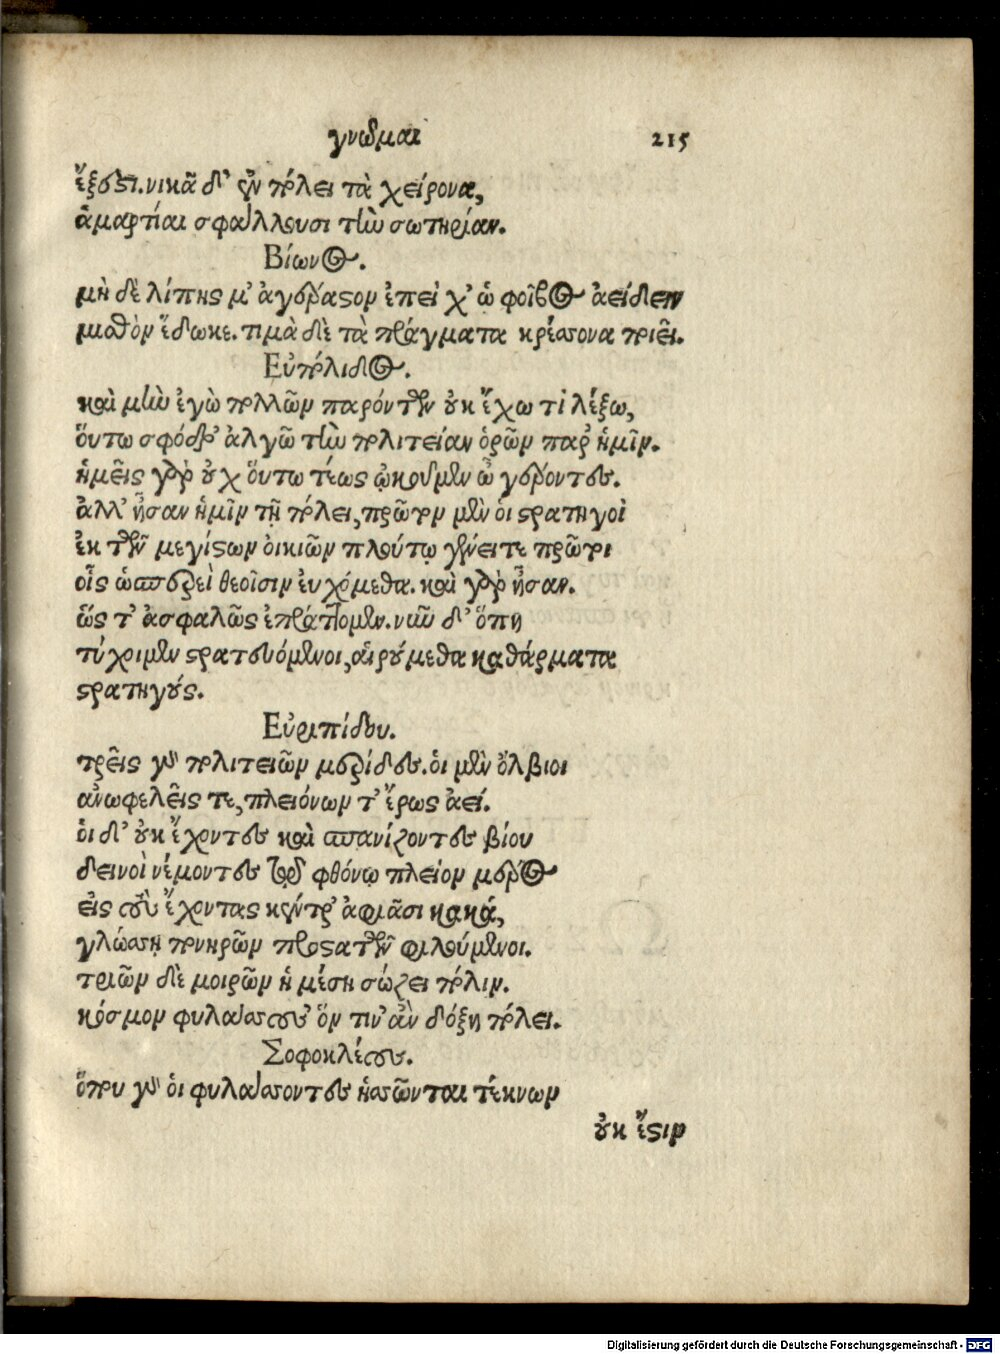 γνῶμαι 215
ἔξεστι. νικᾶ δ' ἐν πόλει τὰ χείρονα,
ἁμαρτίαι σφάλλουσι τὴν σωτηρίαν.
Βίωνος.
μὴ δὲ λίπης μ' ἀγέραστον ἐπεὶ χ' ὡ φοῖβος ἀείδειν
μισθὸν ἔδωκε. τιμὰ δὲ τὰ πράγματα κρέασονα ποιεῖ.
Εὐπόλιδος.
καὶ μὴν ἐγὼ πολλῶν παρόντων οὐκ ἔχω τὶ λέξω,
ὅυτω σφόδρ' ἀλγῶ τὴν πολιτείαν ὁρῶν παρ' ἡμῖν.
ἡμεῖς γὰρ οὐχ ὅυτω τέως ᾠκοῦμεν ὦ γέροντες.
ἀλλ' ἦσαν ἡμῖν τῆ πόλει, πρῶτον μὲν ὁι στρατηγοὶ
ἐκ τῶν μεγίστων ὀικιῶν πλούτῳ γένει τε πρῶτοι
οἷς ὡσπερεὶ θεοῖσιν ἐυχόμεθα. καὶ γὰρ ἦσαν.
ὥς τ' ἀσφαλῶς ἐπράττομεν. νῦν δ' ὅπη
τύχοιμεν στρατευόμενοι, ἁιρούμεθα καθάρματα
στρατηγούς.
Εὐριπίδου.
τρεῖς γε πολιτειῶν μερίδες. ὁι μὲν ὄλβιοι
ἀνωφελεῖς τε, πλειόνων τ' ἔρως ἀεί.
ὁι δ' οὐκ ἔχοντες καὶ σπανίζοντες βίου
δεινοὶ νέμοντες τοῦ φθόνῳ πλεῖον μέρος
εἰς τοὺς ἔχοντας κέντρ' ἀφιᾶσι κακά,
γλώσση πονηρῶν προστατῶν φιλούμενοι.
τριῶν δὲ μοιρῶν ἡ μέση σώζει πόλιν.
κόσμον φυλάσσουσ' ὅν τιν' ἂν δόξη πόλει.
Σοφοκλέους.
ὅπου γε ὁι φυλάσσοντες ἡσσῶνται τέκνων
οὐκ ἔστιν
Digitalisierung gefördert durch die Deutsche Forschungsgemeinschaft - DFG